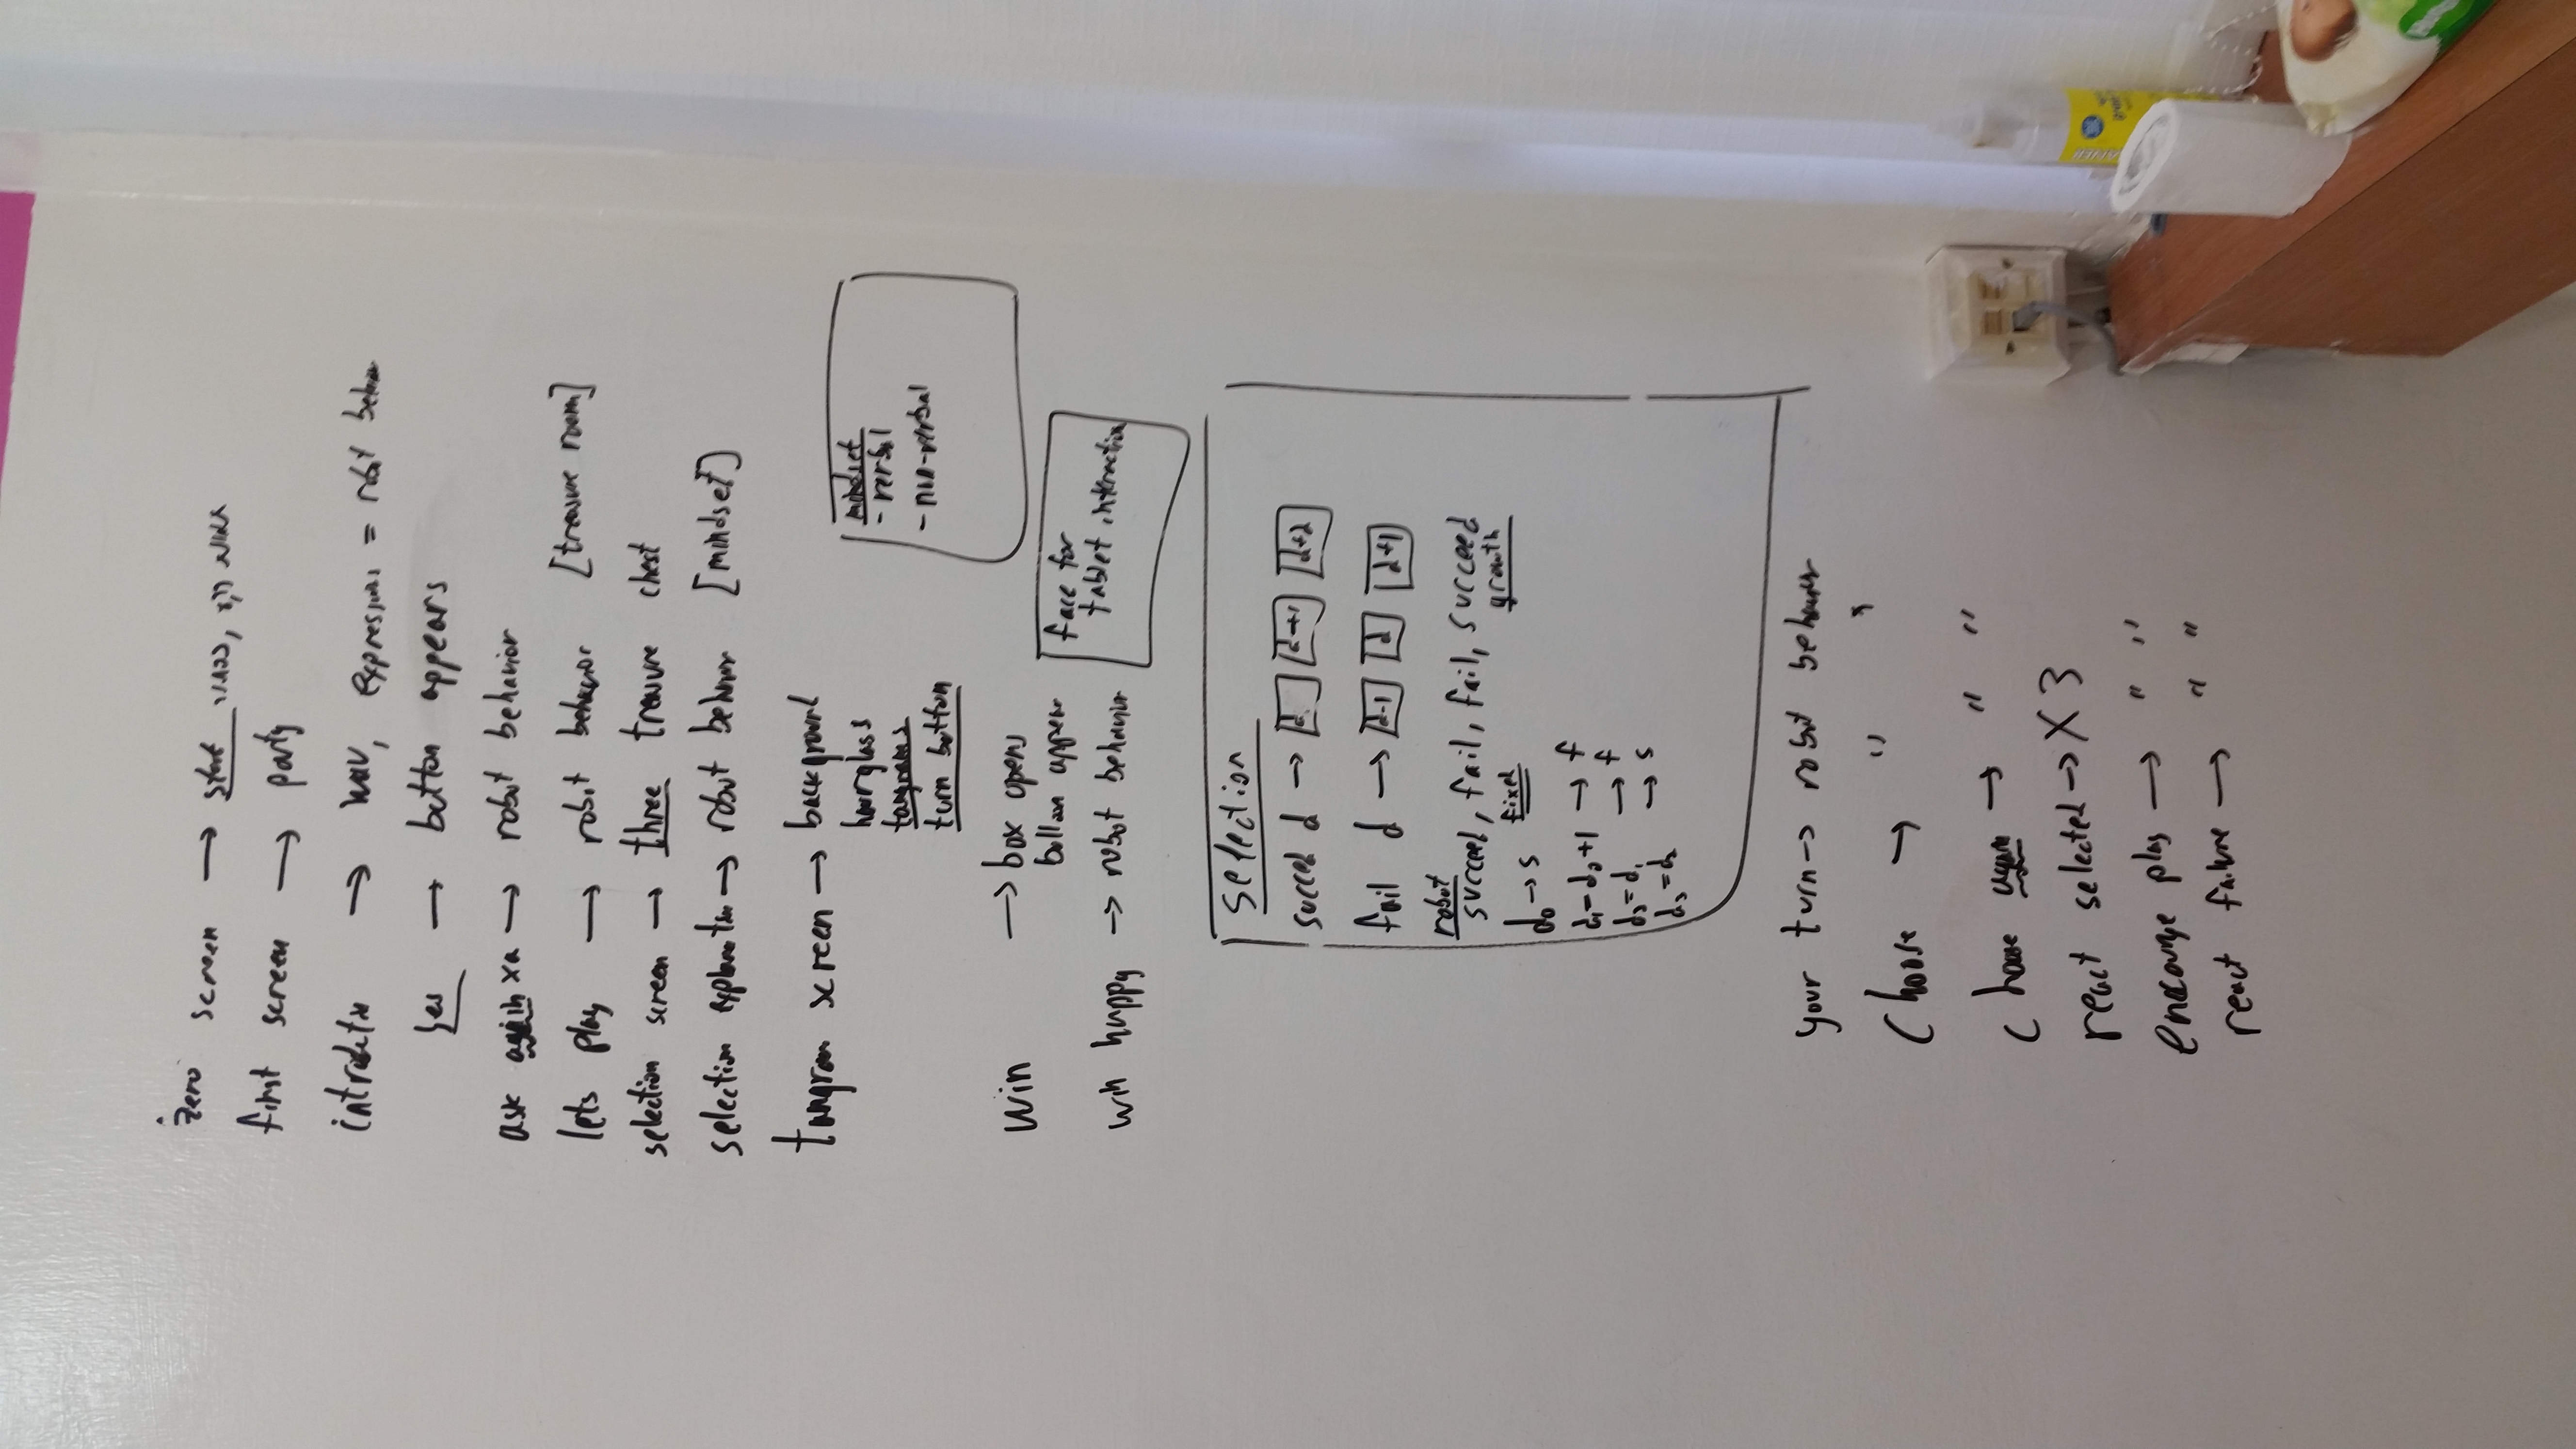 zero screen → start
first screen → party
→ wav, expressions = robot behavior
yes → button appears
ask again x2 → robot behavior
lets play → robot behavior [treasure room]
selection screen → three treasure chest
selection explanation → robot behavior [mindset]
tangram screen → background
hourglass
tangrams
turn button
mindset
- verbal
- non-verbal
win → box opens
balloon appear
face for
tablet interaction
win happy → robot behavior
selection
succeed d → d d+1 d+2
fail d → d-1 d d+1
robot
succeed, fail, fail, succeed
fixed growth
d₀ → s
d₁ = d₀+1 → f
d₂ = d₁ → f
d₃ = d₂ → s
your turn → robot behavior
choose → " "
choose again → " "
react selected → X 3
encourage play → " "
react failure → " "